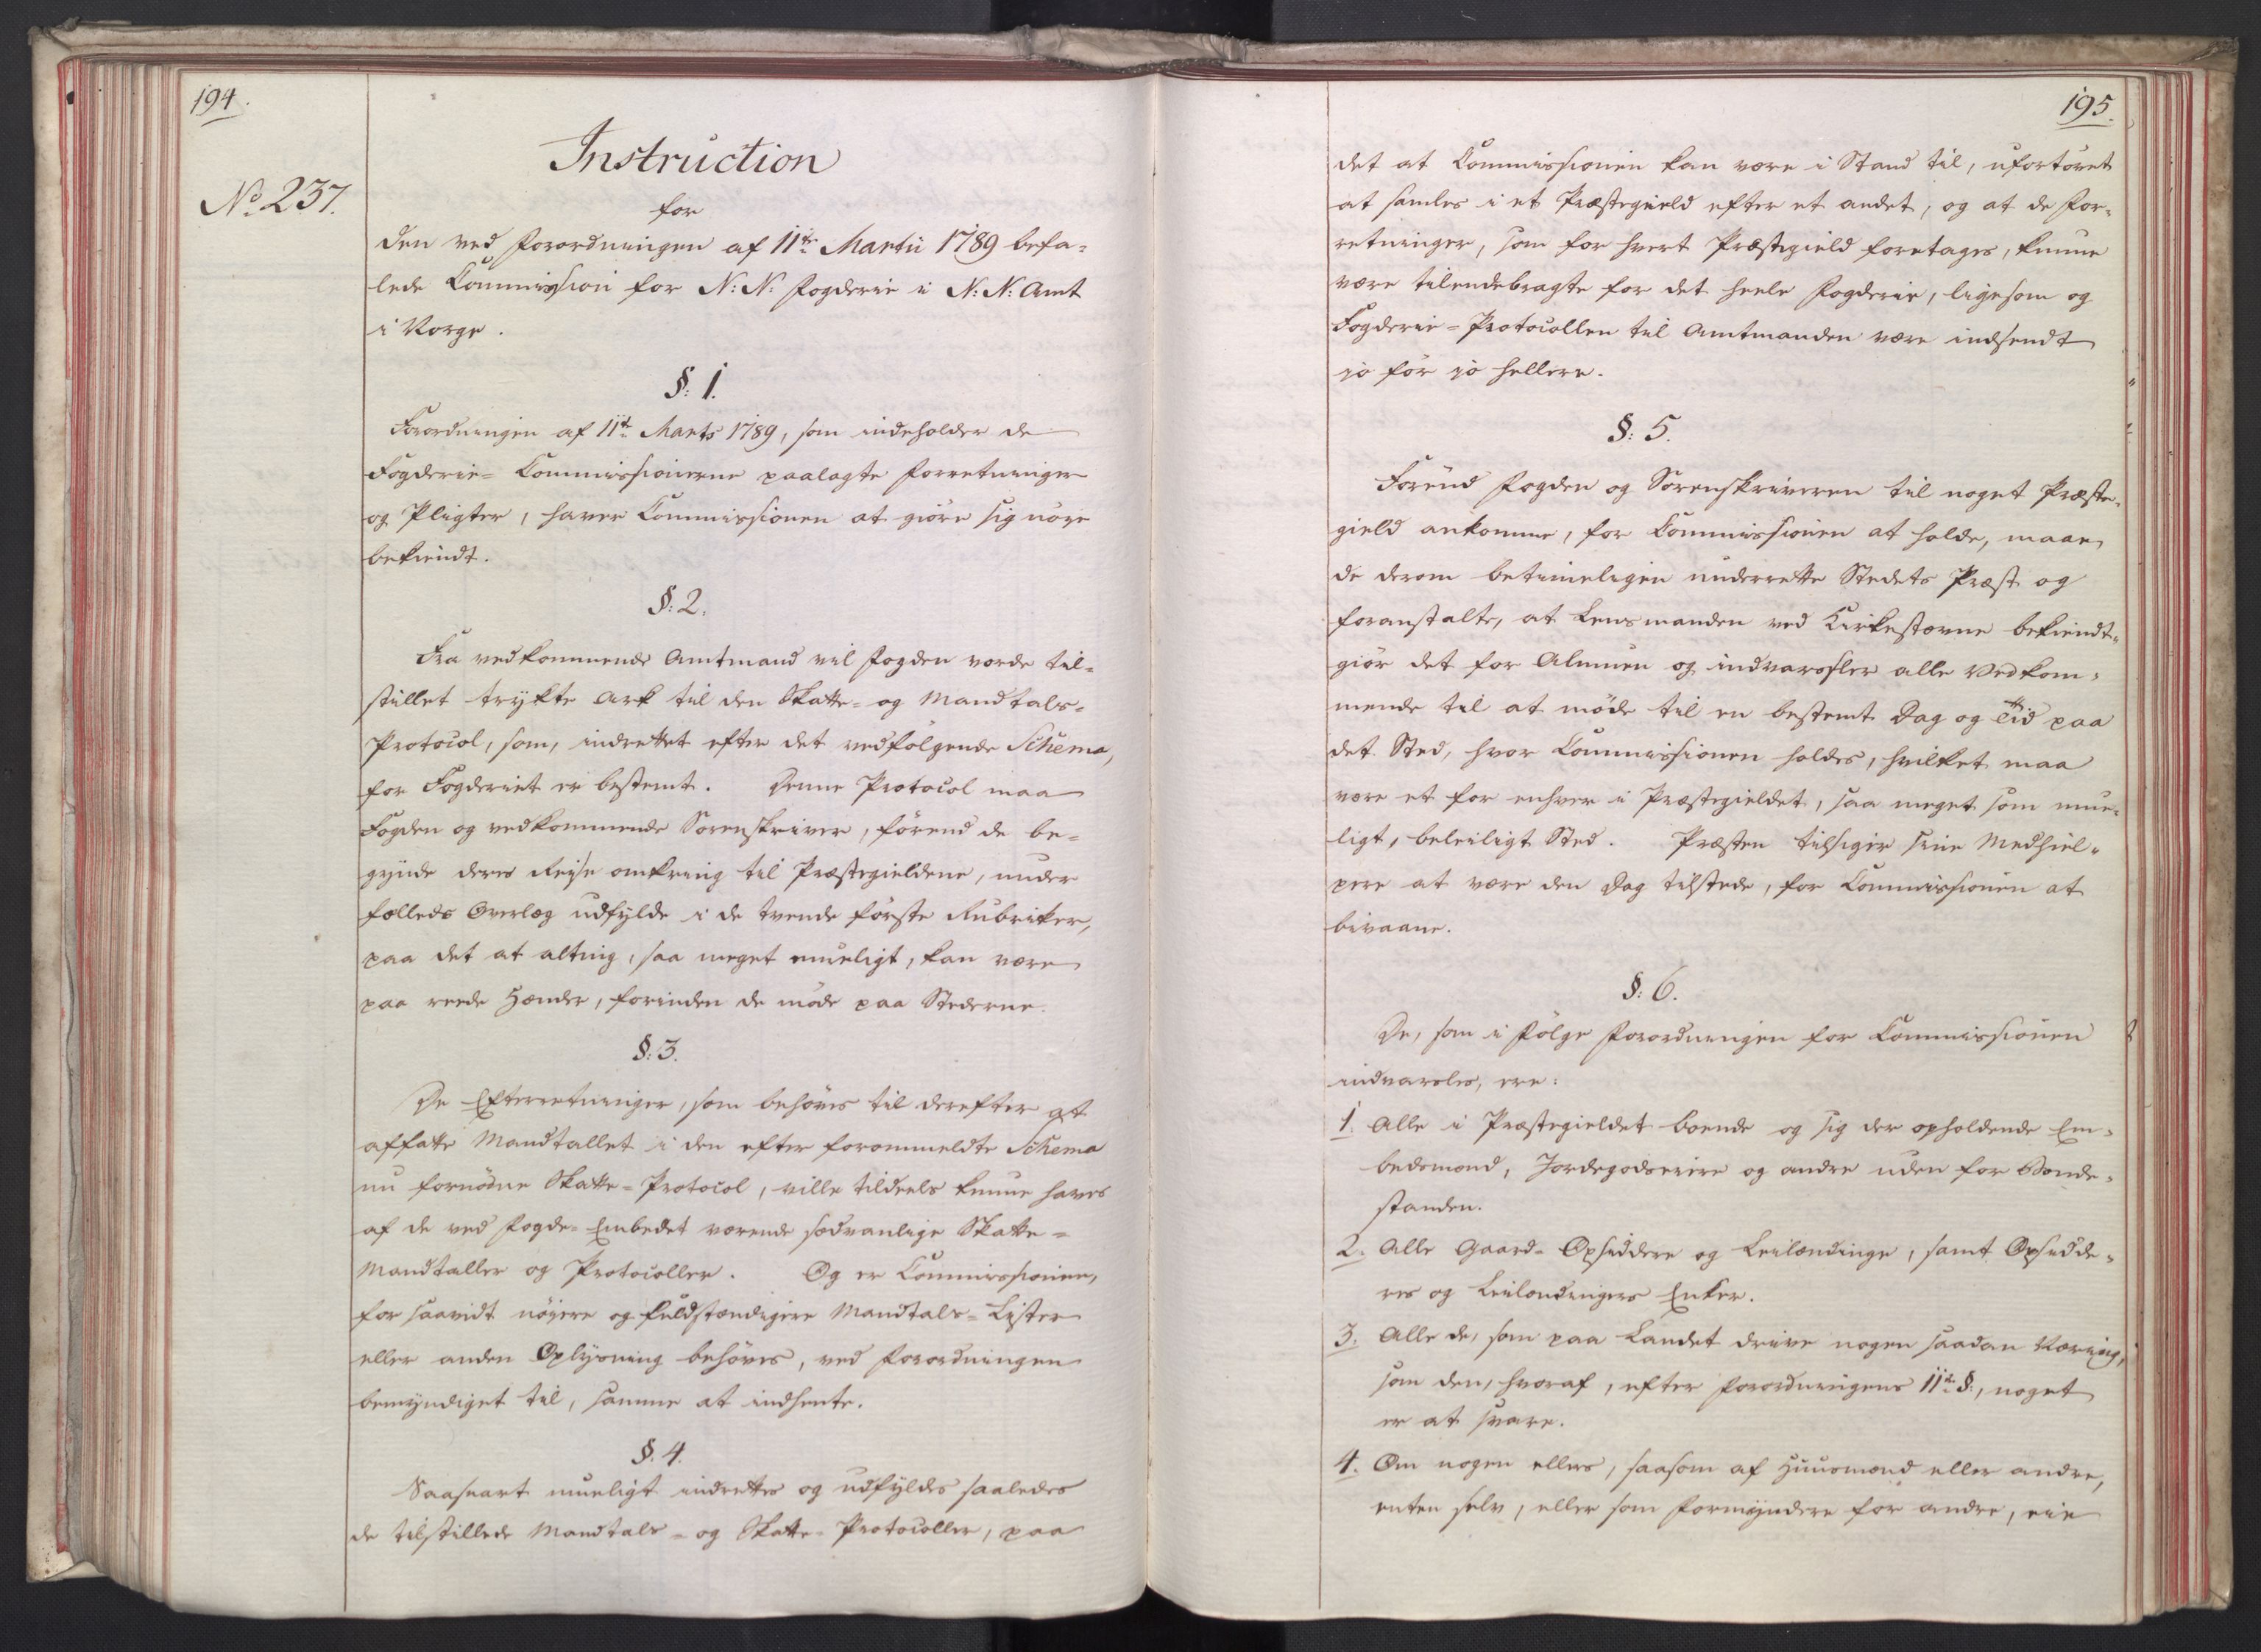 194.
Instruction
No. 237.
for
den ved Forordningen af 11te Martii 1789 befa-
lede Commission for N: N: Fogderie i N: N: Amt
i Norge.
§: 1.
Forordningen af 11te Marts 1789, som indeholder de
Fogderie- Commissionerne paalagte Forretninger
og Pligter, haver Commissionen at giöre sig nöie
bekiendt.
§: 2.
Fra vedkommende Amtmand vil Fogden vorde til-
stillet trykte Ark til den Skatte- og Mandtals-
Protocol, som, indrettet efter det vedfölgende Schema,
for Fogderiet er bestemt. Denne Protocol maa
Fogden og vedkommende Sorenskriver, förend de be-
gynde deres Reise omkring til Præstegieldene, under
fælleds Overlæg udfylde i de tvende förste Rubriker,
paa det at alting, saa meget mueligt, kan være
paa reede Hænder, forinden de möde paa Stederne.
§: 3.
De Efterretninger, som behöves til derefter at
affatte Mandtallet i den efter forommeldte Schema
nu fornödne Skatte-Protocol, ville tildeels kunne haves
af de ved Fogde-Embedet værende sædvanlige Skatte-
Mandtaller og Protocoller. Og er Commissionen,
for saavidt nöiere og fuldstændigere Mandtals-Lister
eller anden Oplysning behöves, ved Forordningen
bemyndiget til, samme at indhente.
§. 4.
Saasnart mueligt indrettes og udfyldes saaledes
de tilstillede Mandtals- og Skatte-Protocoller, paa
195.
det at Commissionen kan være i Stand til, ufortövet
at samles i et Præstegield efter et andet, og at de For-
retninger, som for hvert Præstegield foretages, kunne
være tilendebragte for det heele Fogderie, ligesom og
Fogderie-Protocollen til Amtmanden være indsendt
jo för jo hellere.
§: 5.
Forend Fogden og Sorenskriveren til noget Præste-
gield ankomme, for Commissionen at holde, maae
de derom betimeligen underrette Stedets Præst og
foranstalte, at Lensmanden ved Kirkestævne bekiendt-
giör det for Almuen og indvarsler alle Vedkom-
mende til at möde til en bestemt Dag og Tid paa
det Sted, hvor Commissionen holdes, hvilket maa
være et for enhver i Præstegieldet, saa meget som mue-
ligt, beleiligt Sted. Præsten tilsiger sine Medhiel-
pere at være den Dag tilstede, for Commissionen at
bivaane.
§: 6.
De, som i Fölge Forordningen for Commissionen
indvarsles, ere:
1. Alle i Præstegieldet boende og sig der opholdende Em-
bedsmænd, Jordegodseiere og andre uden for Bonde-
standen.
2. Alle Gaard-Opsiddere og Leilændinge, samt Opsidde-
res og Leilændingers Enker.
3. Alle de, som paa Landet drive nogen saadan Næring,
som den, hvoraf, efter Forordningens 11te §:, noget
er at svare.
4. Om nogen ellers, saasom af Huusmænd eller andre,
enten selv, eller som Formyndere for andre, eie